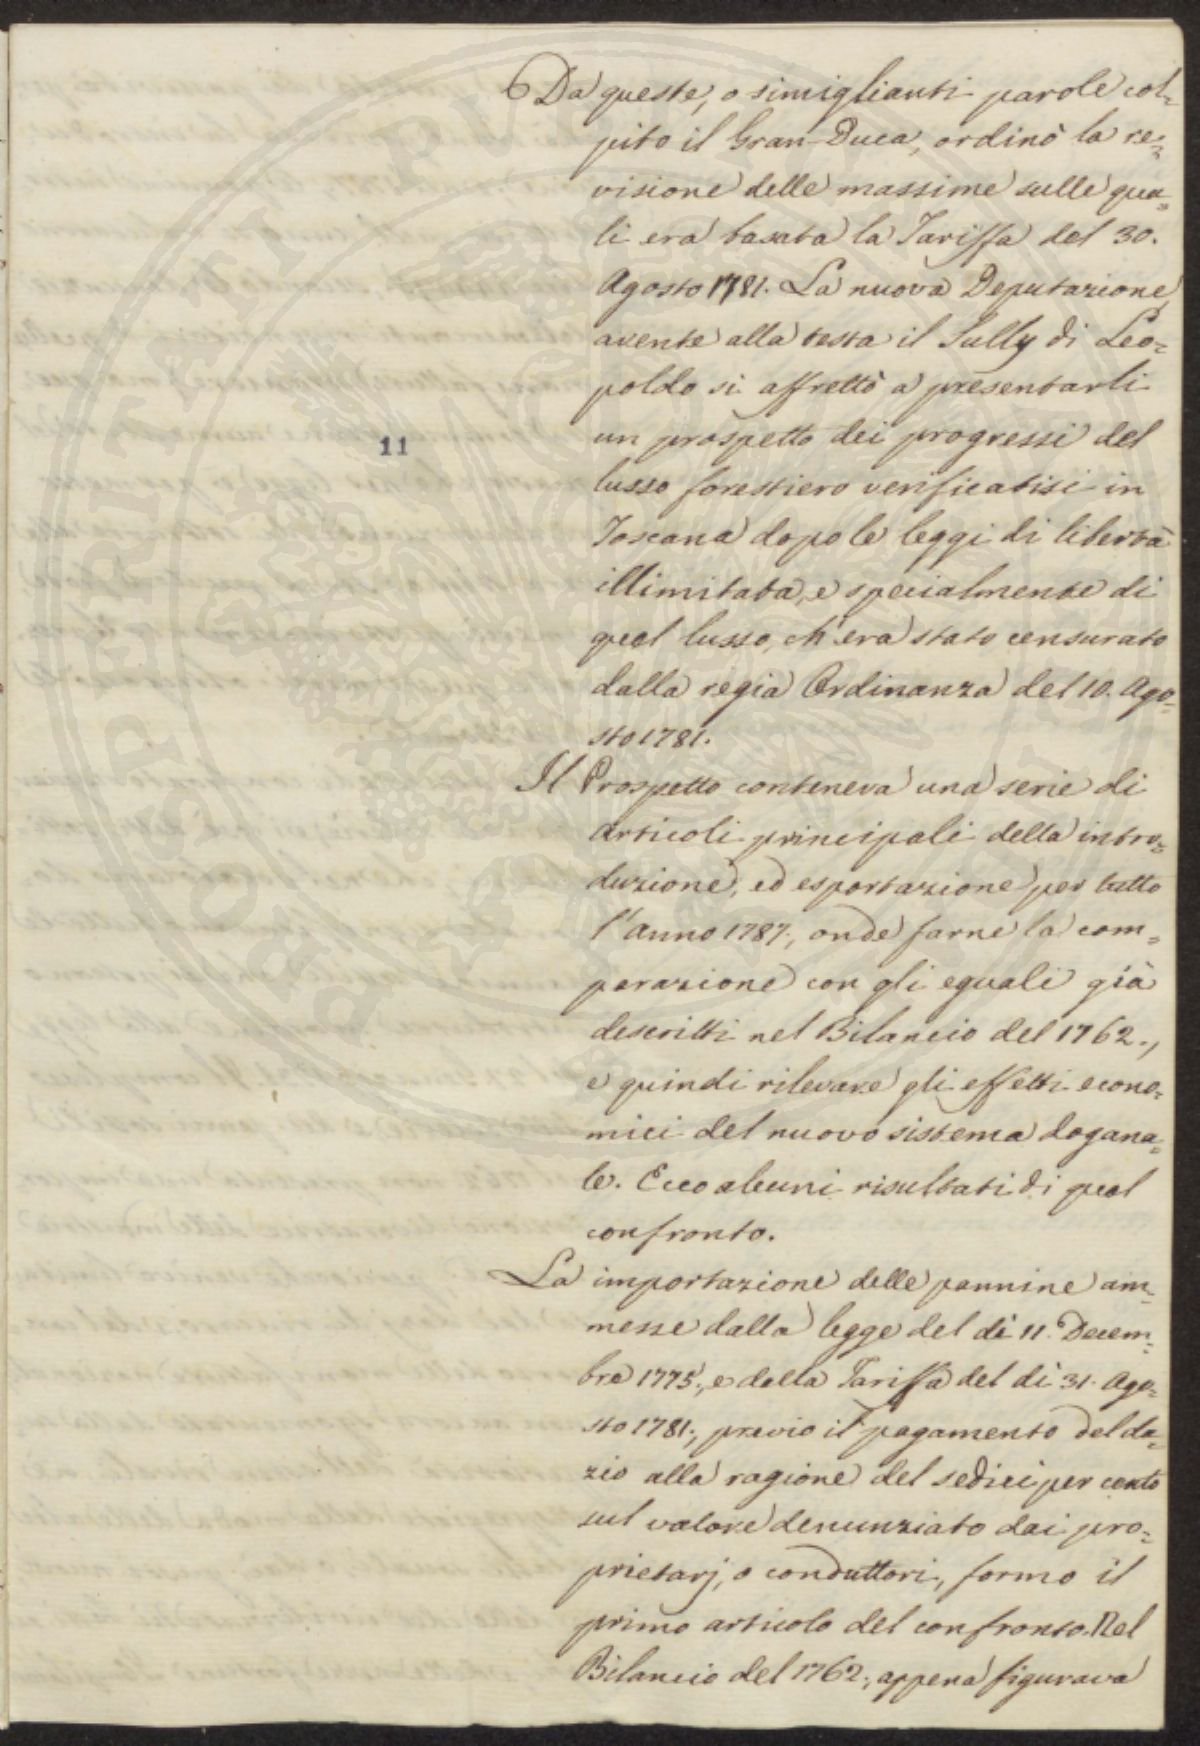 Da queste, o simiglianti parole col=
pito il Gran-Duca, ordinò la re=
visione delle massime sulle qua=
li era basata la Tariffa del 30.
Agosto 1781. La nuova Deputazione
avente alla testa il Sully di Leo=
poldo si affrettò a presentarli
un prospetto dei progressi del
11
lusso forestiero verificatisi in
Toscana dopo le leggi di libertà
illimitata, e specialmente di
quel lusso, ch'era stato censurato
dalla regia Ordinanza del 10. Ago=
sto 1781.
Il Prospetto conteneva una serie di
articoli principali della intro=
duzione, ed esportazione per tutto
l'anno 1787., onde farne la com=
parazione con gli eguali già
descritti nel Bilancio del 1762.,
e quindi rilevare gli effetti econo=
mici del nuovo sistema dogana=
le. Ecco alcuni risultati di quel
confronto.
La importazione delle pannine am=
messe dalla legge del dì 11. Decem=
bre 1775., e dalla Tariffa del dì 31. Ago=
sto 1781., previo il pagamento del da=
zio alla ragione del sedici per cento
sul valore denunziato dai pro=
prietarj, o conduttori, formo il
primo articolo del confronto. Nel
Bilancio del 1762., appena figurava
PROPERITATI PUBLICAE